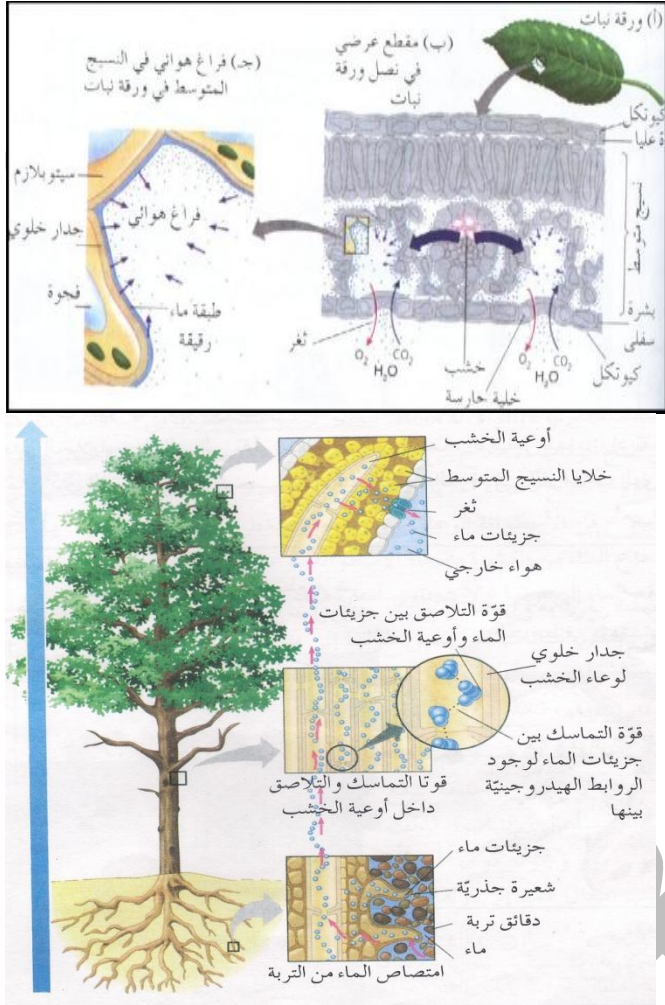 (أ) ورقة نبات
(ب) مقطع عرضي
في نصل ورقة
نبات
(جـ) فراغ هوائي في النسيج
المتوسط في ورقة نبات
كيوتكل
ة عليا
نسيج متوسط
بشرة
سفلى
كيوتكل
سيتوبلازم
جدار خلوي
فجوة
فراغ هوائي
طبقة ماء
رقيقة
ثغر
O₂
H₂O
CO₂
خشب
خلية حارسة
O₂
H₂O
CO₂
أوعية الخشب
خلايا النسيج المتوسط
ثغر
جزيئات ماء
هواء خارجي
قوّة التلاصق بين جزيئات
الماء وأوعية الخشب
جدار خلوي
لوعاء الخشب
قوّة التماسك بين
جزيئات الماء لوجود
الروابط الهيدروجينيّة
بينها
قوتا التماسك والتلاصق
داخل أوعية الخشب
جزيئات ماء
شعيرة جذريّة
دقائق تربة
ماء
امتصاص الماء من التربة